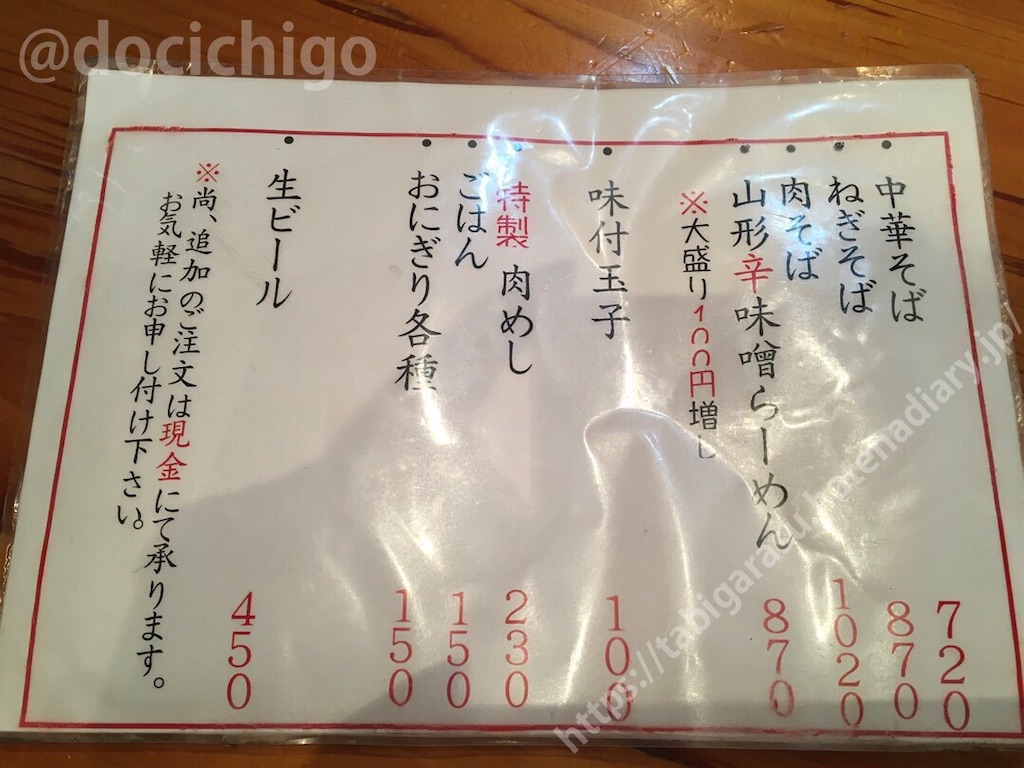 @docichigo
中華そば 720
ねぎそば 870
肉そば 1020
山形辛味噌らーめん 870
※大盛り100円増し
味付玉子 100
特製肉めし 230
ごはん 150
おにぎり各種 150
生ビール 450
※尚、追加のご注文は現金にて承ります。
お気軽にお申し付け下さい。
https://tabigarasu.hatenadiary.jp/